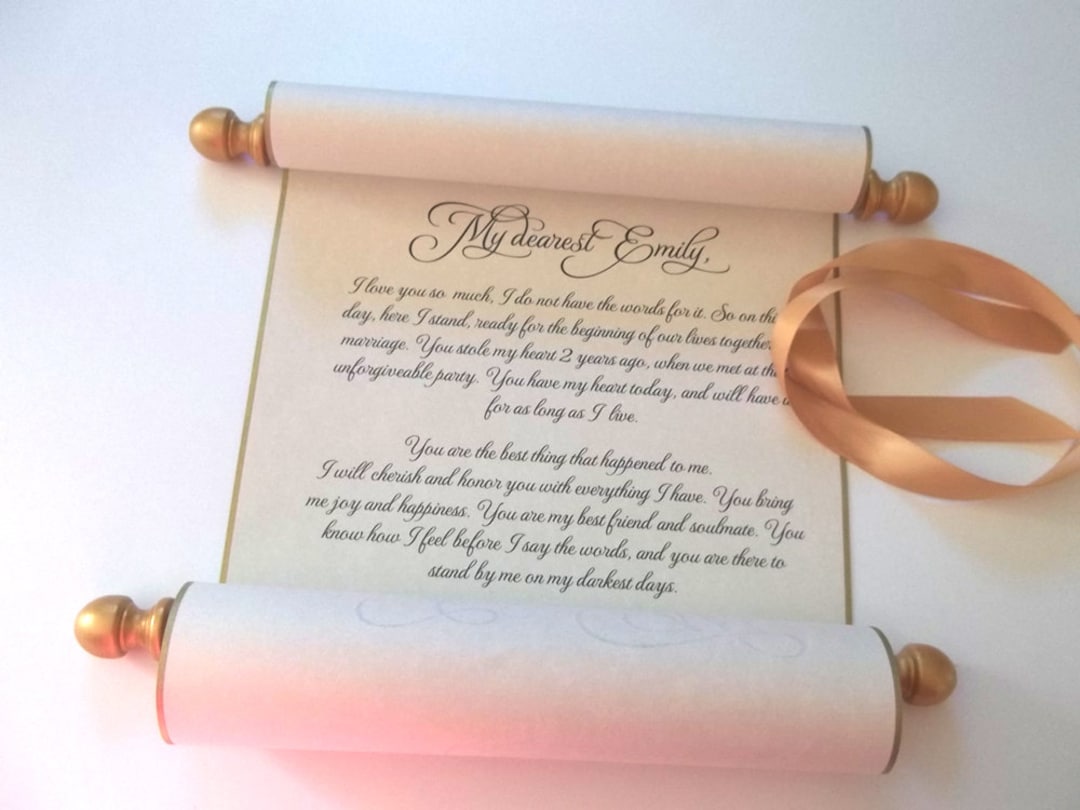 My dearest Emily,
I love you so much, I do not have the words for it. So on
day, here I stand, ready for the beginning of our lives together
marriage. You stole my heart 2 years ago, when we met at
unforgiveable party. You have my heart today, and will have
for as long as I live.
You are the best thing that happened to me.
I will cherish and honor you with everything I have. You bring
me joy and happiness. You are my best friend and soulmate. You
know how I feel before I say the words, and you are there to
stand by me on my darkest days.